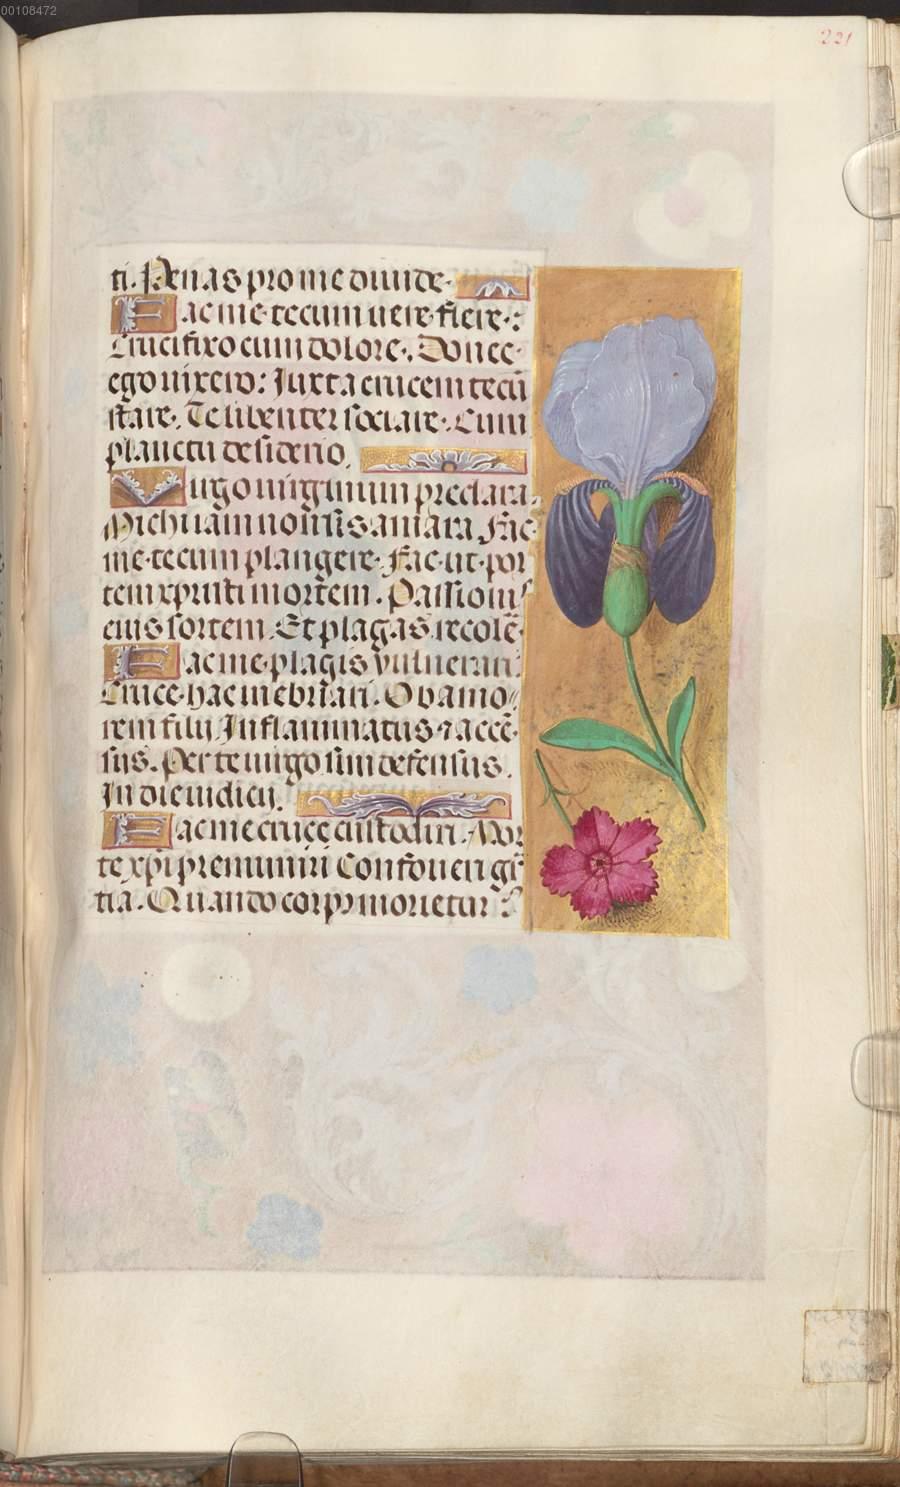 00108472
221
ti. Penas pro me diuide.
Fac me tecum uere flere:
Crucifixo cum dolore. Donec
ego uixero: Iuxta crucem tecū
stare. Te libenter sociare. Cum
planctu desiderio.
Uirgo uirginum preclara.
Michi iam non sis amara. Fac
me tecum plangere. Fac ut por
tem xpristi mortem. Passionis
eius sortem. Et plagas recolē
Fac me plagis uulnerari:
Cruce hac inebriari. Ob amo
rem filij Inflammatus ⁊ accē
sus. Per te uirgo sim defensus.
In die iudicij.
Fac me cruce custodiri. Mor
te xp̄i premuniri Confoueri gr̄
tia. Quando corpꝰ morietur: